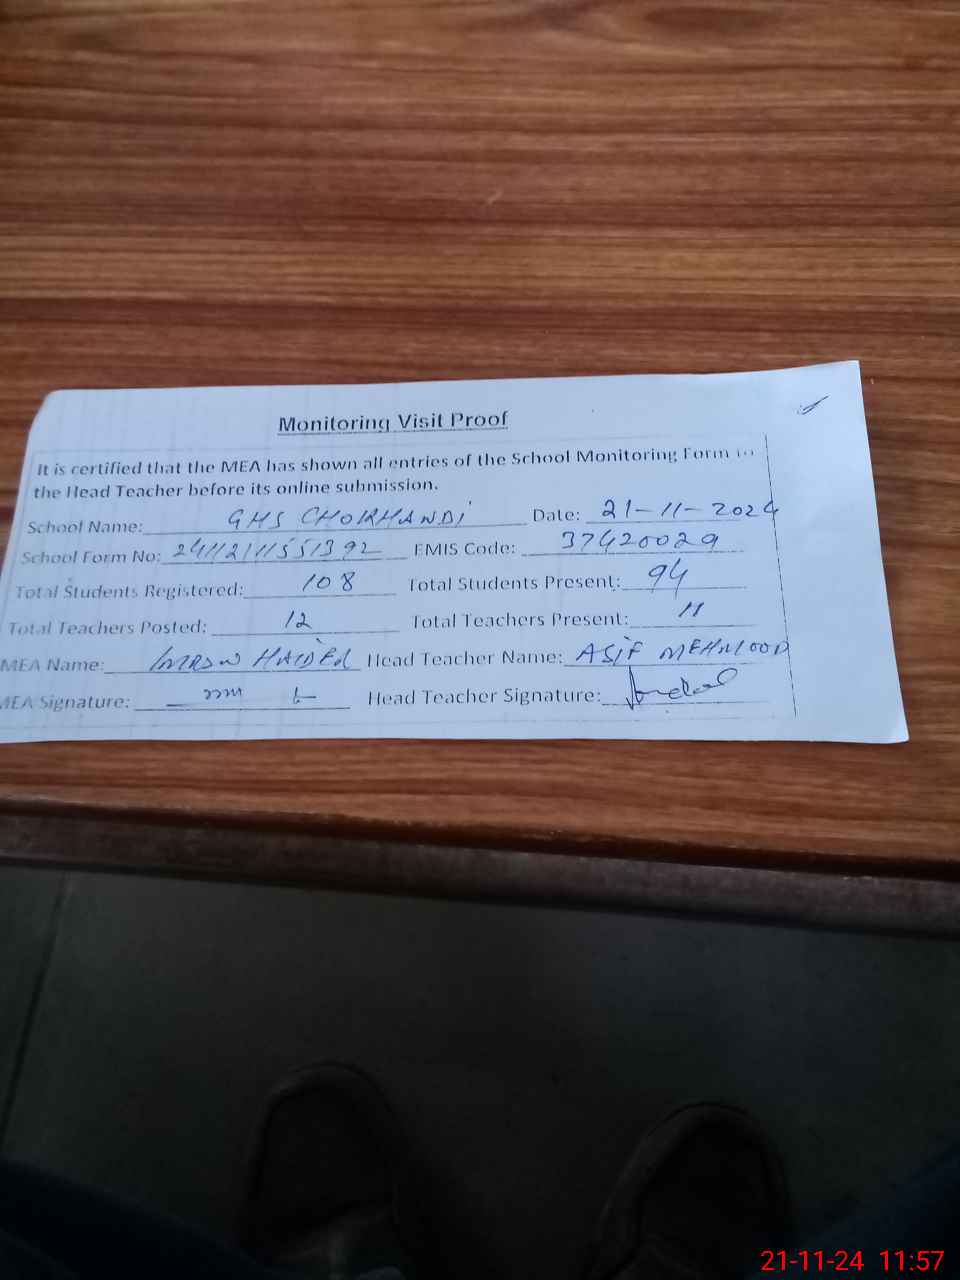 Monitoring Visit Proof
It is certified that the MEA has shown all entries of the School Monitoring Form to
the Head Teacher before its online submission.
School Name: GHS CHOKHANDI Date: 21-11-2024
School Form No: 24112111551392 EMIS Code: 37420029
Total Students Registered: 108 Total Students Present: 94
Total Teachers Posted: 12 Total Teachers Present: 11
MEA Name: IMRAN HAIDER Head Teacher Name: ASIF MEHMOOD
MEA Signature: Head Teacher Signature:
21-11-24 11:57